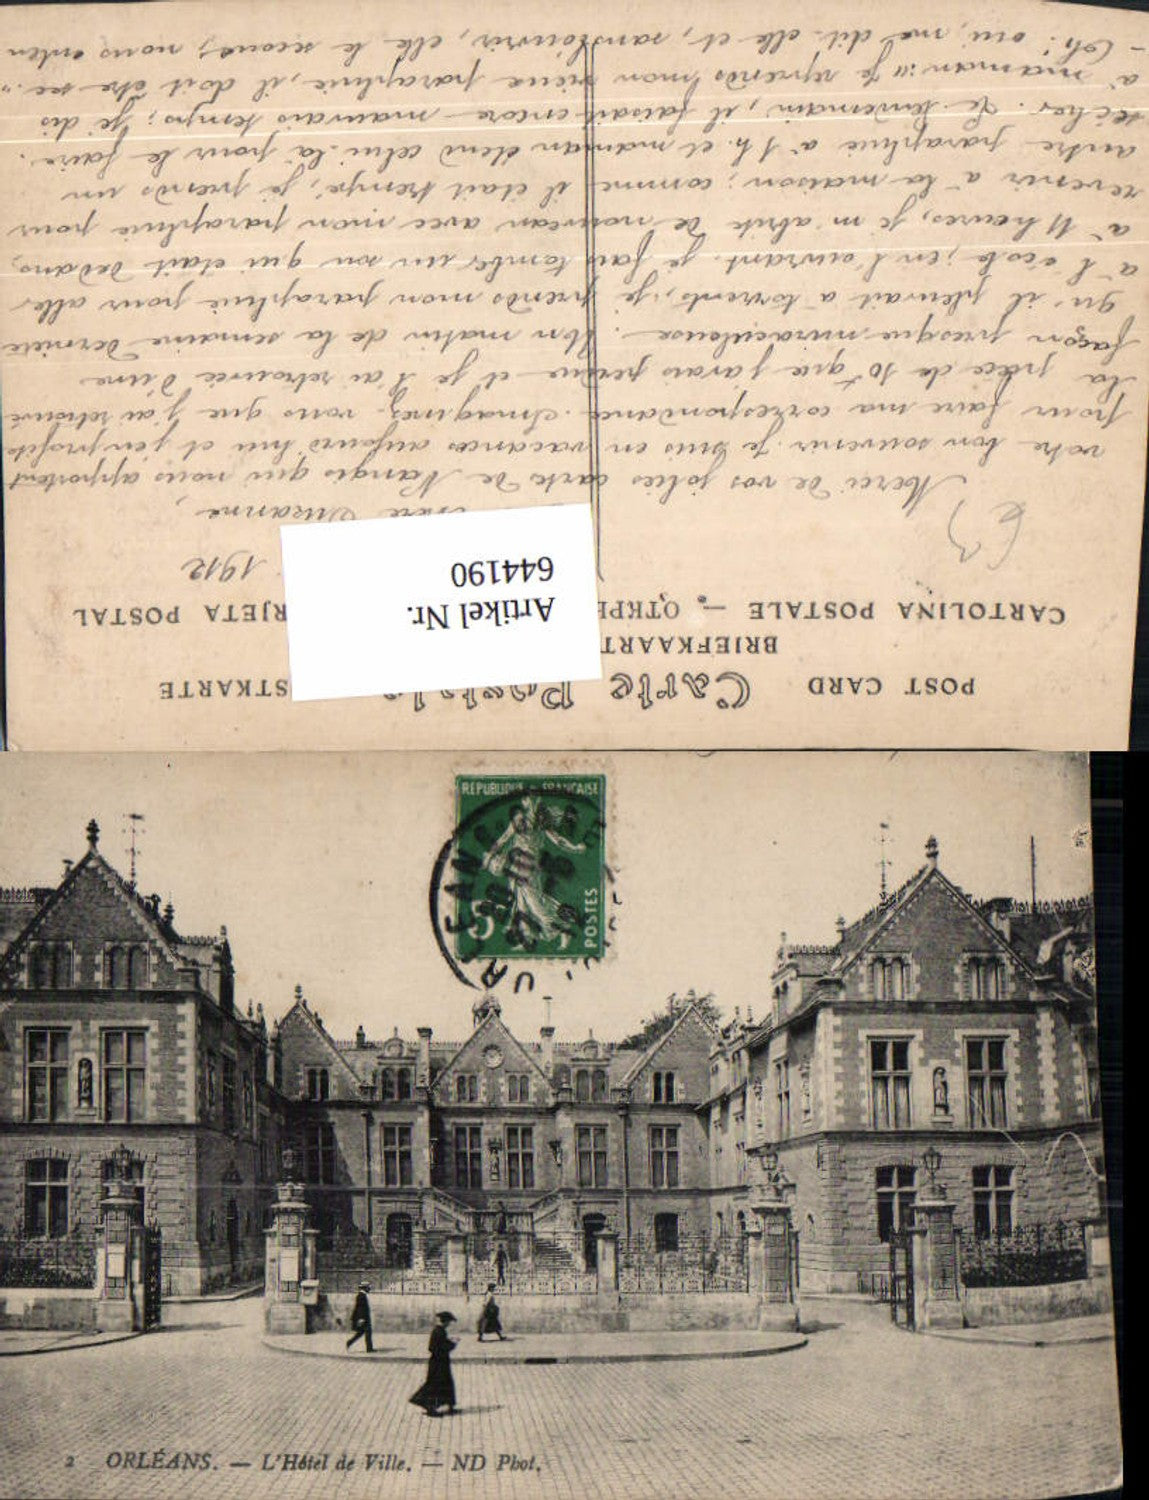 POST CARD Carte Postale STKARTE
BRIEFKAART
CARTOLINA POSTALE — ОТКРЫ RJETA POSTAL
Artikel Nr.
644190
1912
Suzanne,
Merci de vos jolies carte de Nangis qui nous apportent
votre bon souvenir. Je suis en vacances aujourd'hui et j'en profite
pour faire ma correspondance. Imaginez-vous que j'ai retrouvé
la pièce de 10 que j'avais perdue et je l'ai retrouvée d'une
façon presque miraculeuse. Un matin de la semaine dernière
qu'il pleuvait à torrents, je prends mon parapluie pour aller
à l'école; en l'ouvrant je fais tomber un son qui était dedans,
à 11 heures, je m'abrite de nouveau avec mon parapluie pour
revenir à la maison; comme il était trempé, je prends un
autre parapluie à 1 h. et maman étend celui-là pour le faire
sécher. Le lendemain, il faisait encore mauvais temps; je dis
à maman: "Je reprends mon vieux parapluie, il doit être sec."
- Oh! oui, me dit-elle et, sans l'ouvrir, elle le secoue; nous enten
REPUBLIQUE FRANÇAISE
POSTES
5 c
2 ORLÉANS. — L'Hôtel de Ville. — ND Phot.